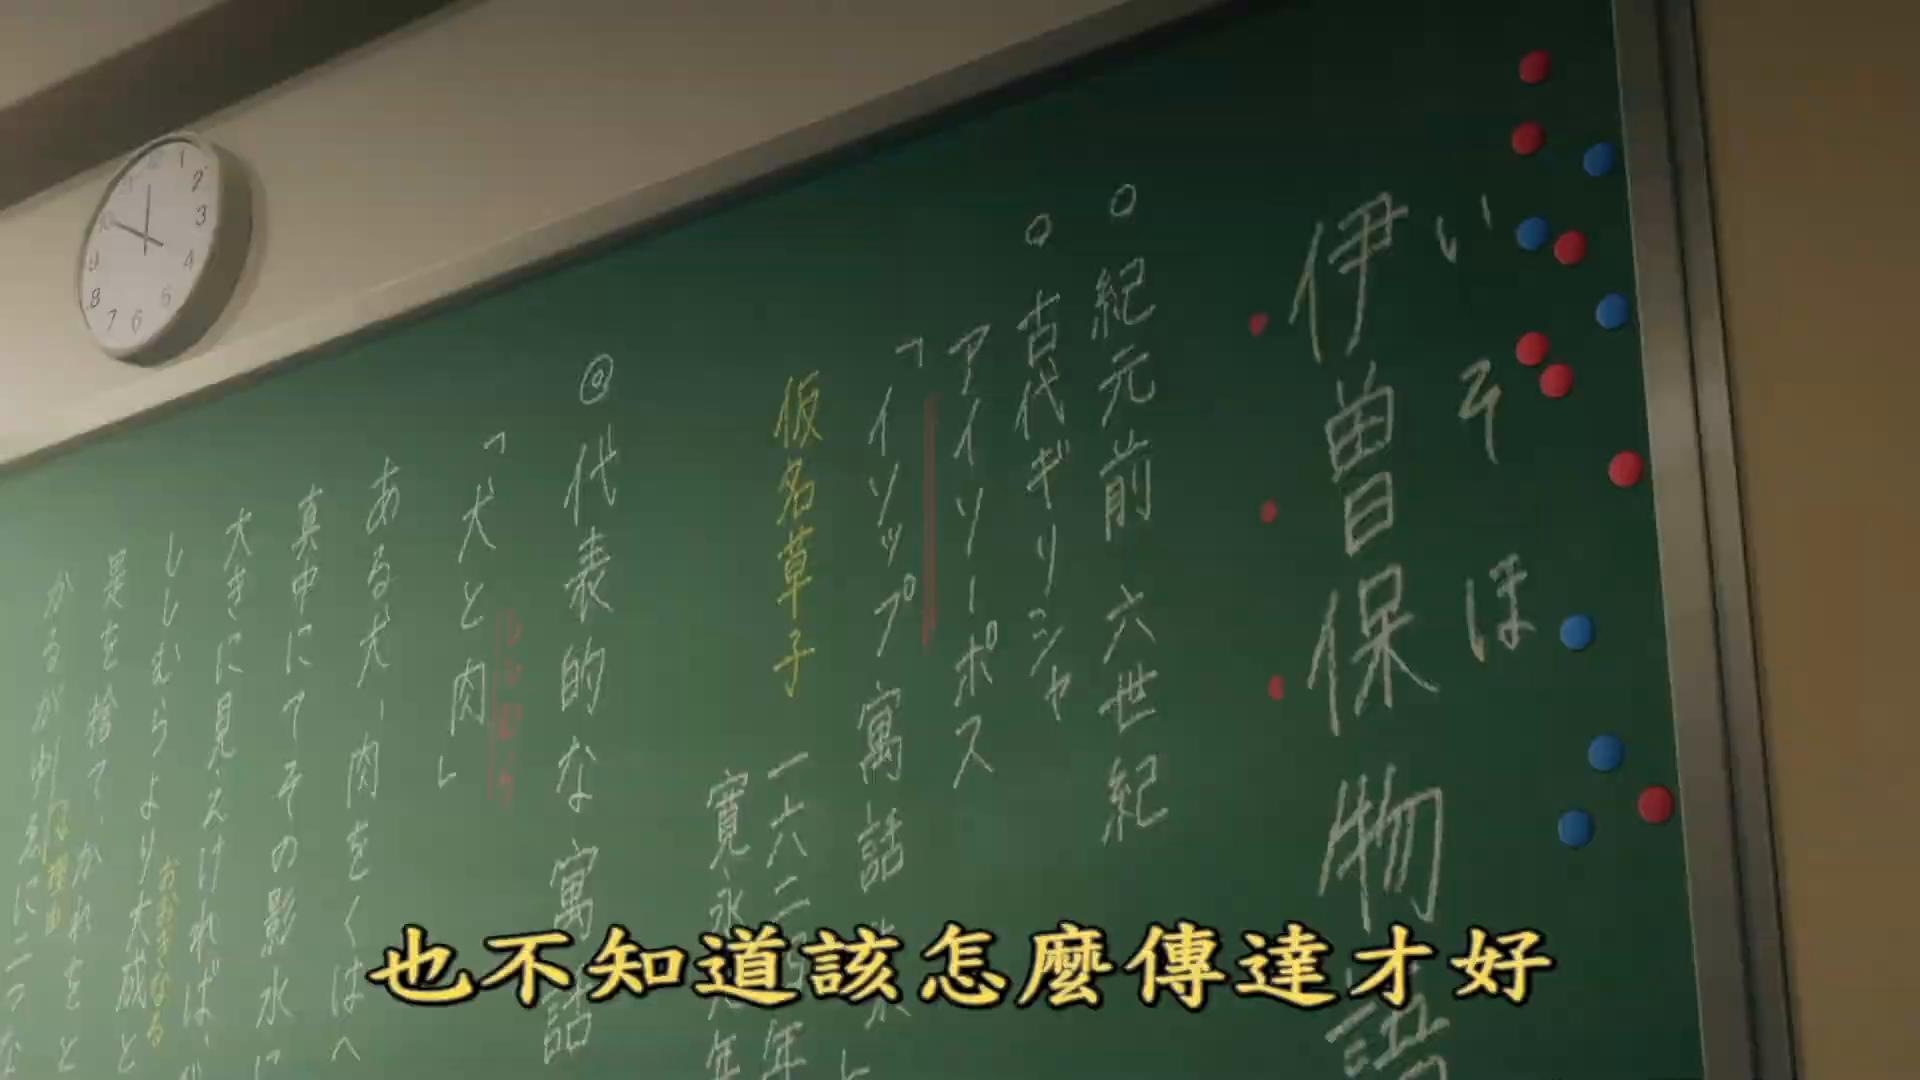 いそほ
伊曽保物語
○紀元前 六世紀
○古代ギリシャ
アイソーポス
「イソップ寓話
仮名草子
一六二四年
寛永元年
◎代表的な寓話
「犬と肉」
ししむら
ある犬、肉をくはへ
真中にてその影水に
大きに見えければ、
ししむらより大成と
おおきなる
是を捨て、かれをと
かるが
に二つな
1 2 3 4 5 6 7 8 9 10
也不知道該怎麼傳達才好